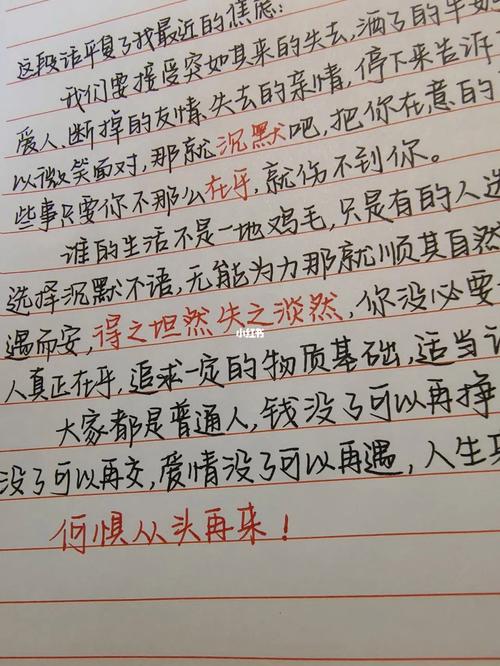 这段话平复了我最近的焦虑:
我们要接受突如其来的失去,洒了的牛
爱人、断掉的友情、失去的亲情,停下来告诉
以微笑面对,那就沉默吧,把你在意的
些事只要你不那么在乎,就伤不到你。
谁的生活不是一地鸡毛,只是有的人选
选择沉默不语,无能为力那就顺其自然
遇而安,得之坦然失之淡然,你没必要
小红书
人真正在乎,追求一定的物质基础,适当
大家都是普通人,钱没了可以再挣
没了可以再交,爱情没了可以再遇,人生
何惧从头再来!